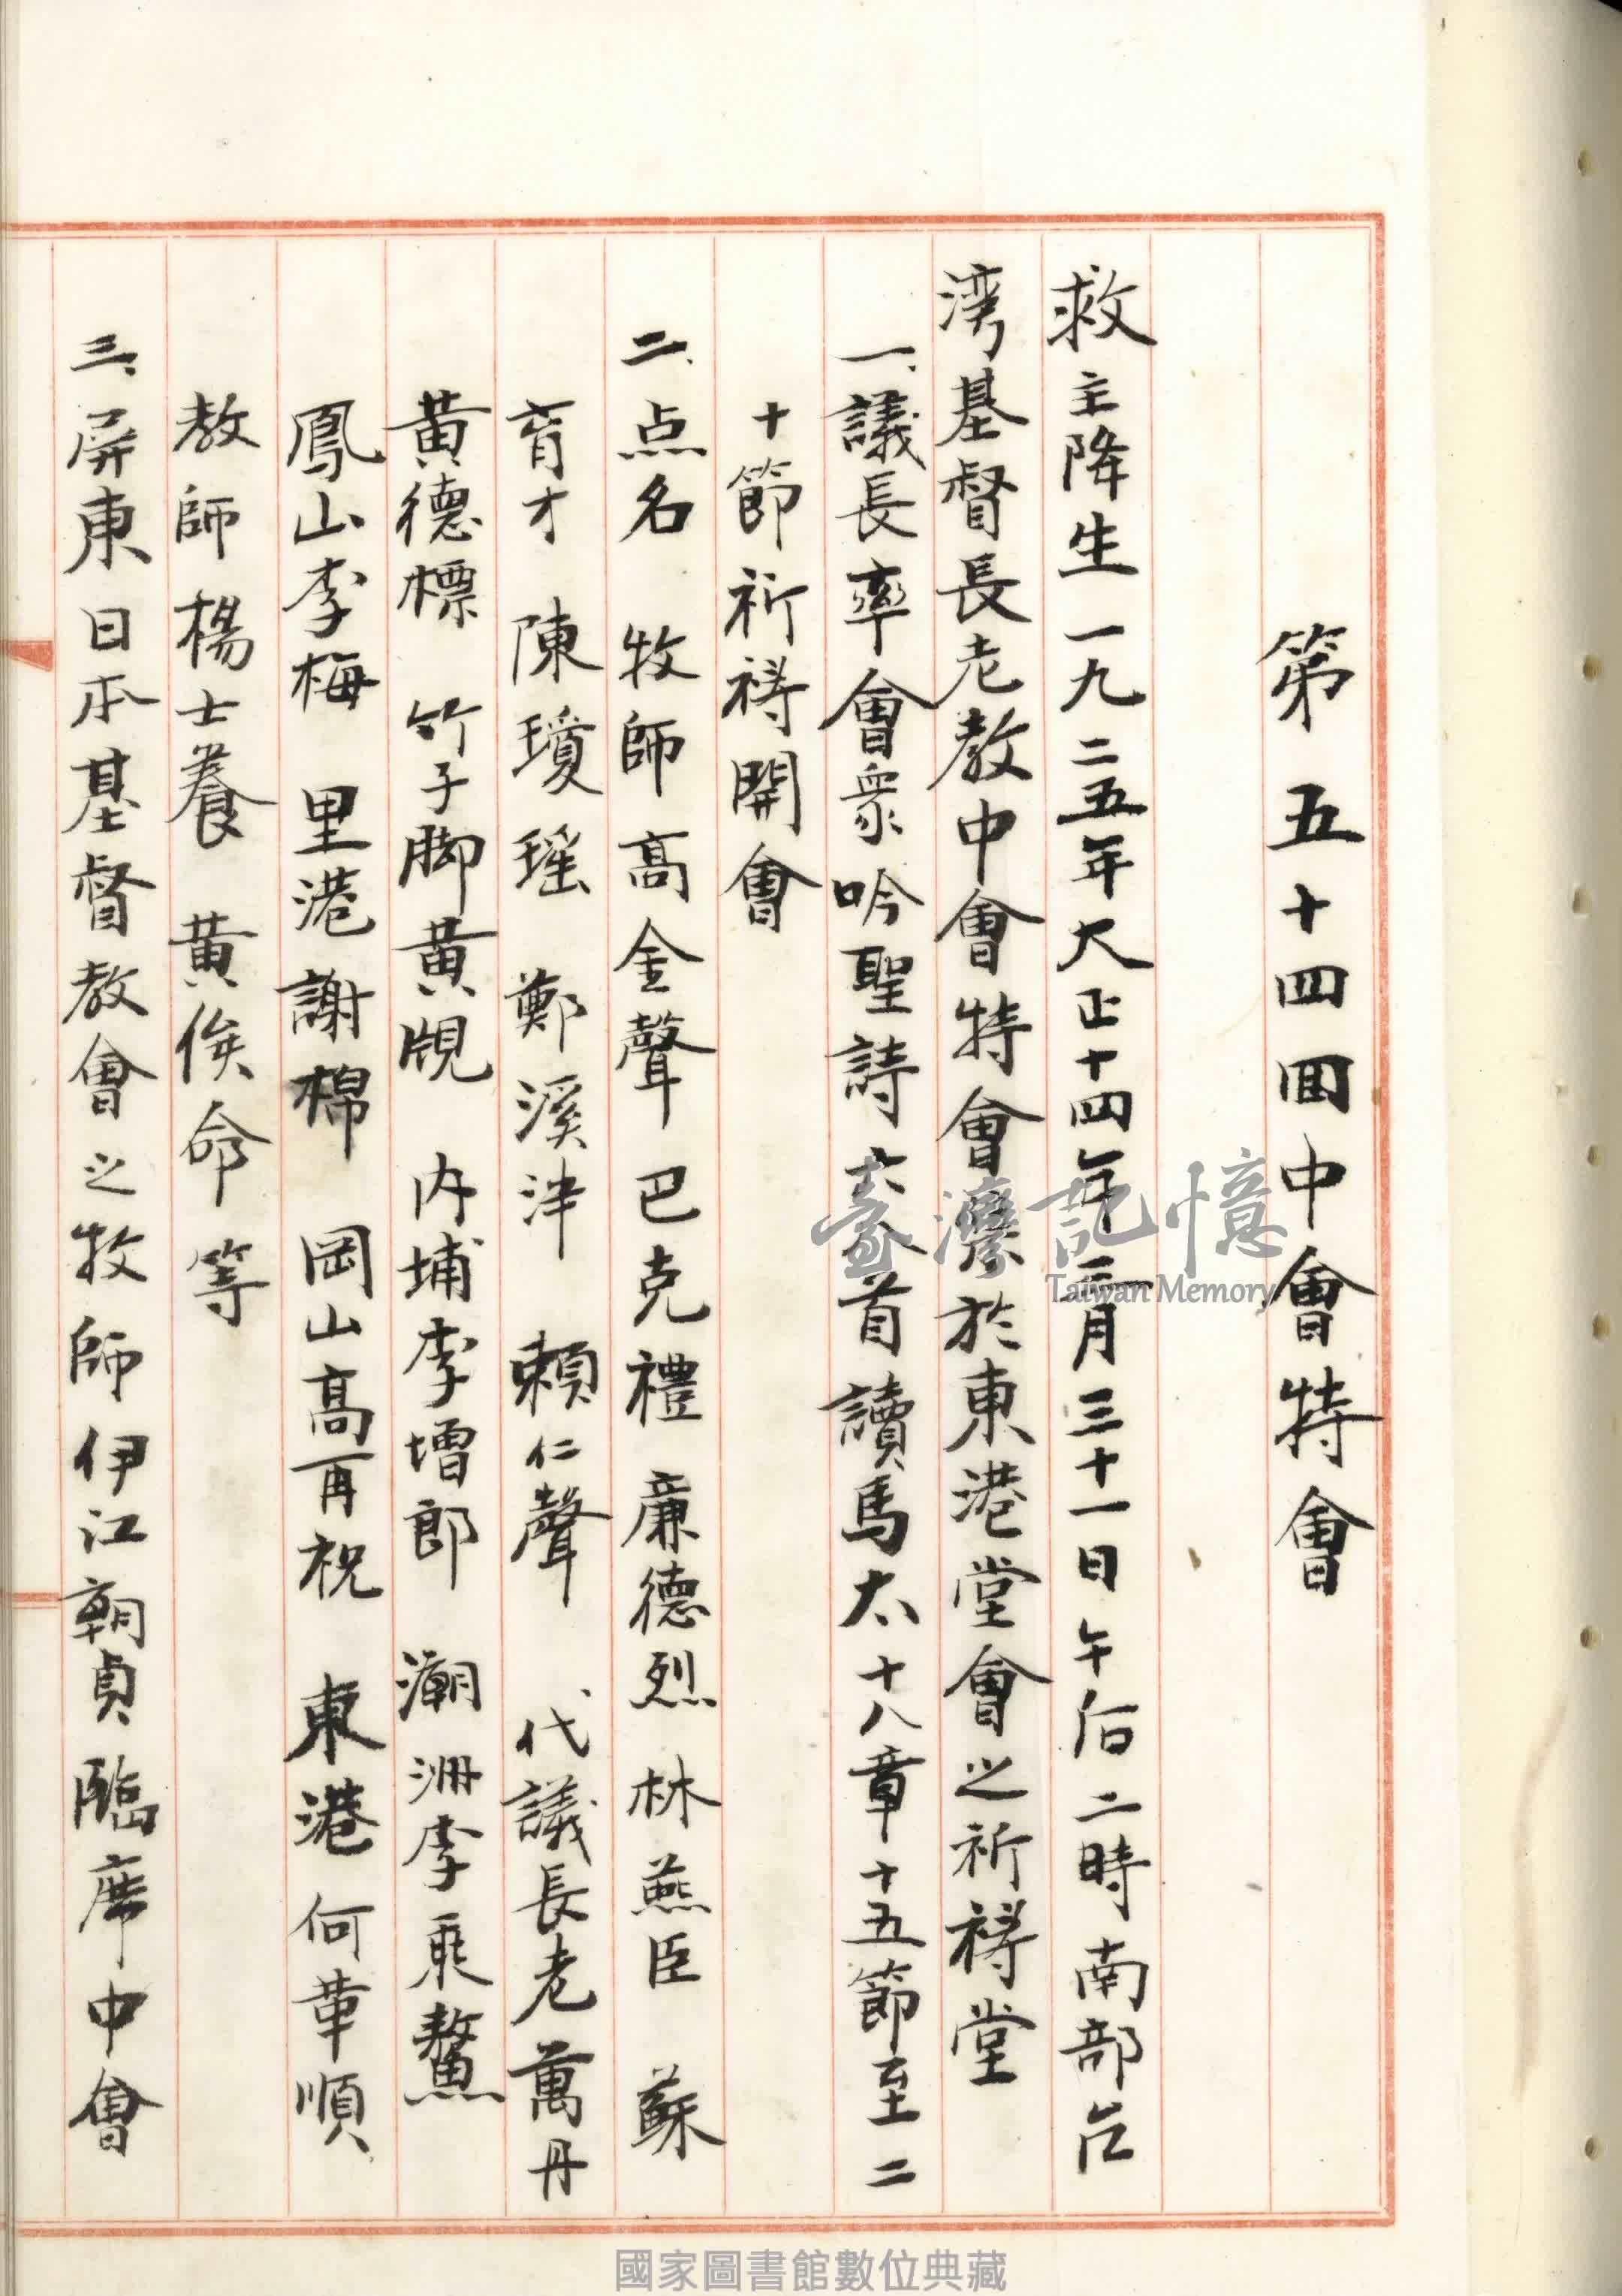 第五十四回中會特會
救主降生一九二五年大正十四年三月三十一日午后二時南部台
湾基督長老教中會特會於東港堂會之祈禱堂
一、議長率會衆吟聖詩六首讀馬太十八章十五節至二
十節祈禱開會
二、点名 牧師高金聲 巴克禮 廉德烈 林燕臣 蘇
育才 陳瓊瑤 鄭溪津 賴仁聲 代議長老萬丹
黃德標 竹子脚黃覕 内埔李增郎 潮洲李乘鰲
鳳山李梅 里港謝棉 岡山高再祝 東港何華順
教師楊士養 黃俟命等
三、屏東日本基督教會之牧師伊江朝貞臨席中會
臺灣記憶
Taiwan Memory
國家圖書館數位典藏